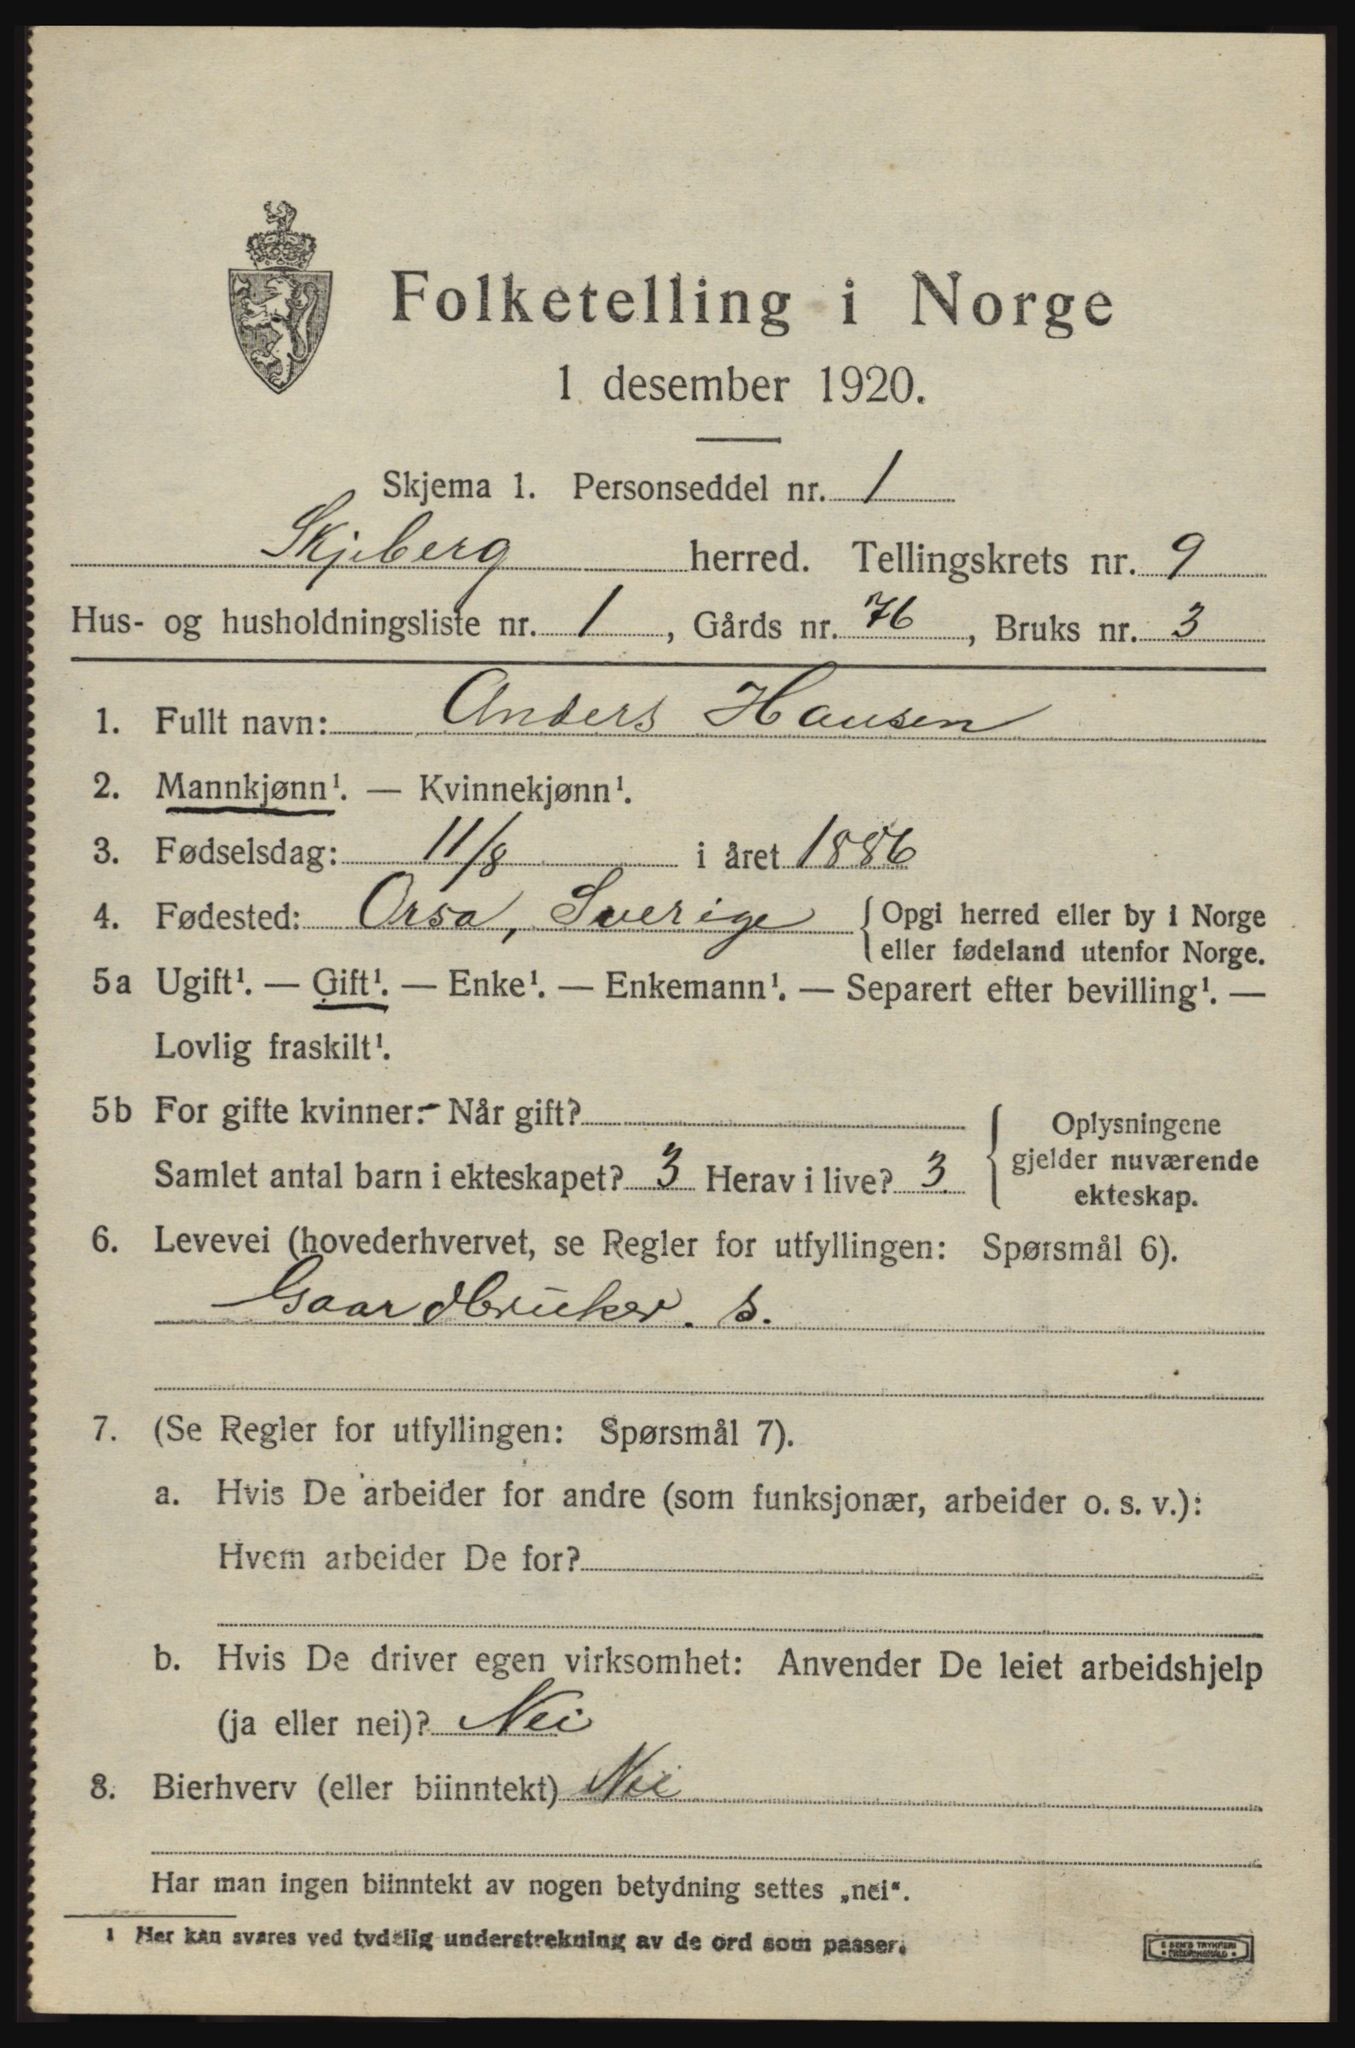 Folketelling i Norge
1 desember 1920.
Skjema 1. Personseddel nr. 1
Skjeberg herred. Tellingskrets nr. 9
Hus- og husholdningsliste nr. 1, Gårds nr. 76, Bruks nr. 3
1. Fullt navn: Anders Hansen
2. Mannkjønn¹. — Kvinnekjønn¹.
3. Fødselsdag: 11/8 i året 1886
4. Fødested: Orsa, Sverige { Opgi herred eller by i Norge
eller fødeland utenfor Norge.
5a Ugift¹. — Gift¹. — Enke¹. — Enkemann¹. — Separert efter bevilling¹. —
Lovlig fraskilt¹.
5b For gifte kvinner: Når gift?
Samlet antal barn i ekteskapet? 3 Herav i live? 3
Oplysningene
gjelder nuværende
ekteskap.
6. Levevei (hovederhvervet, se Regler for utfyllingen: Spørsmål 6).
Gaardbruker. s.
7. (Se Regler for utfyllingen: Spørsmål 7).
a. Hvis De arbeider for andre (som funksjonær, arbeider o. s. v.):
Hvem arbeider De for?
b. Hvis De driver egen virksomhet: Anvender De leiet arbeidshjelp
(ja eller nei)? Nei
8. Bierhverv (eller biinntekt) Nei
Har man ingen biinntekt av nogen betydning settes „nei“.
1 Her kan svares ved tydelig understrekning av de ord som passer.